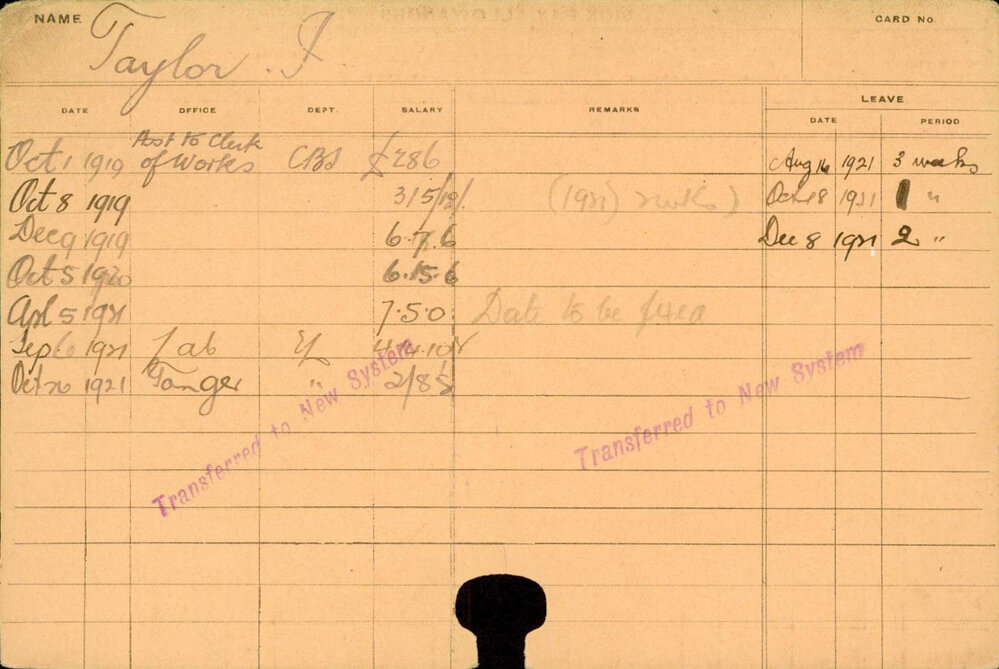 NAME
CARD No.
Taylor. F.
LEAVE
DATE OFFICE DEPT. SALARY REMARKS DATE PERIOD
Oct 1 1919 Asst to Clerk of Works CBS £286 Aug 16 1921 3 weeks
Oct 8 1919 315/12/. (1921) 2 wks) Oct 18 1921 1 "
Dec 9 1919 6.7.6 Dec 8 1921 2 "
Oct 5 1920 6.15.6
Apl 5 1921 7.5.0. Date to be
Sep 6 1921 Lab
Oct 20 1921 Ganger " 2/8
Transferred to New System
Transferred to New System